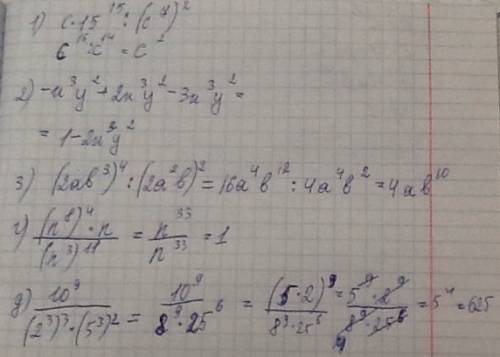 1) c·15¹⁵ : (c⁷)²
c¹⁶ : c¹⁴ = c²
2) -x³y² + 2x³y² - 3x³y² =
= 1 - 2x³y²
3) (2ab³)⁴ : (2a²b)² = 16a⁴b¹² : 4a⁴b² = 4ab¹⁰
4) (n⁸)⁴·n / (n³)¹¹ = n³³ / n³³ = 1
д) 10⁹ / (2³)³·(5³)² = 10⁹ / 8⁹·25⁶ = (5·2)⁹ / 8⁹·25⁶ = 5⁹·2⁹ / 8⁹·25⁶ = 5⁴ = 625